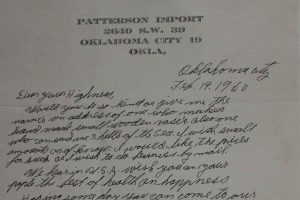 PATTERSON IMPORT
2640 S.W. 39
OKLAHOMA CITY 19
OKLA.
Oklahoma City
Feb 19, 1960
Dear Your Highness,
Would you be so kind as give me the
names or address of one who makes
hand made small wooden also one
who can send me shells of the Sea. I wish small
amounts as of Kenya. I would like the prices
for such as I wish to do business by mail.
We here in U.S.A. wish you and your
people the best of health and happiness
some day you can come to our